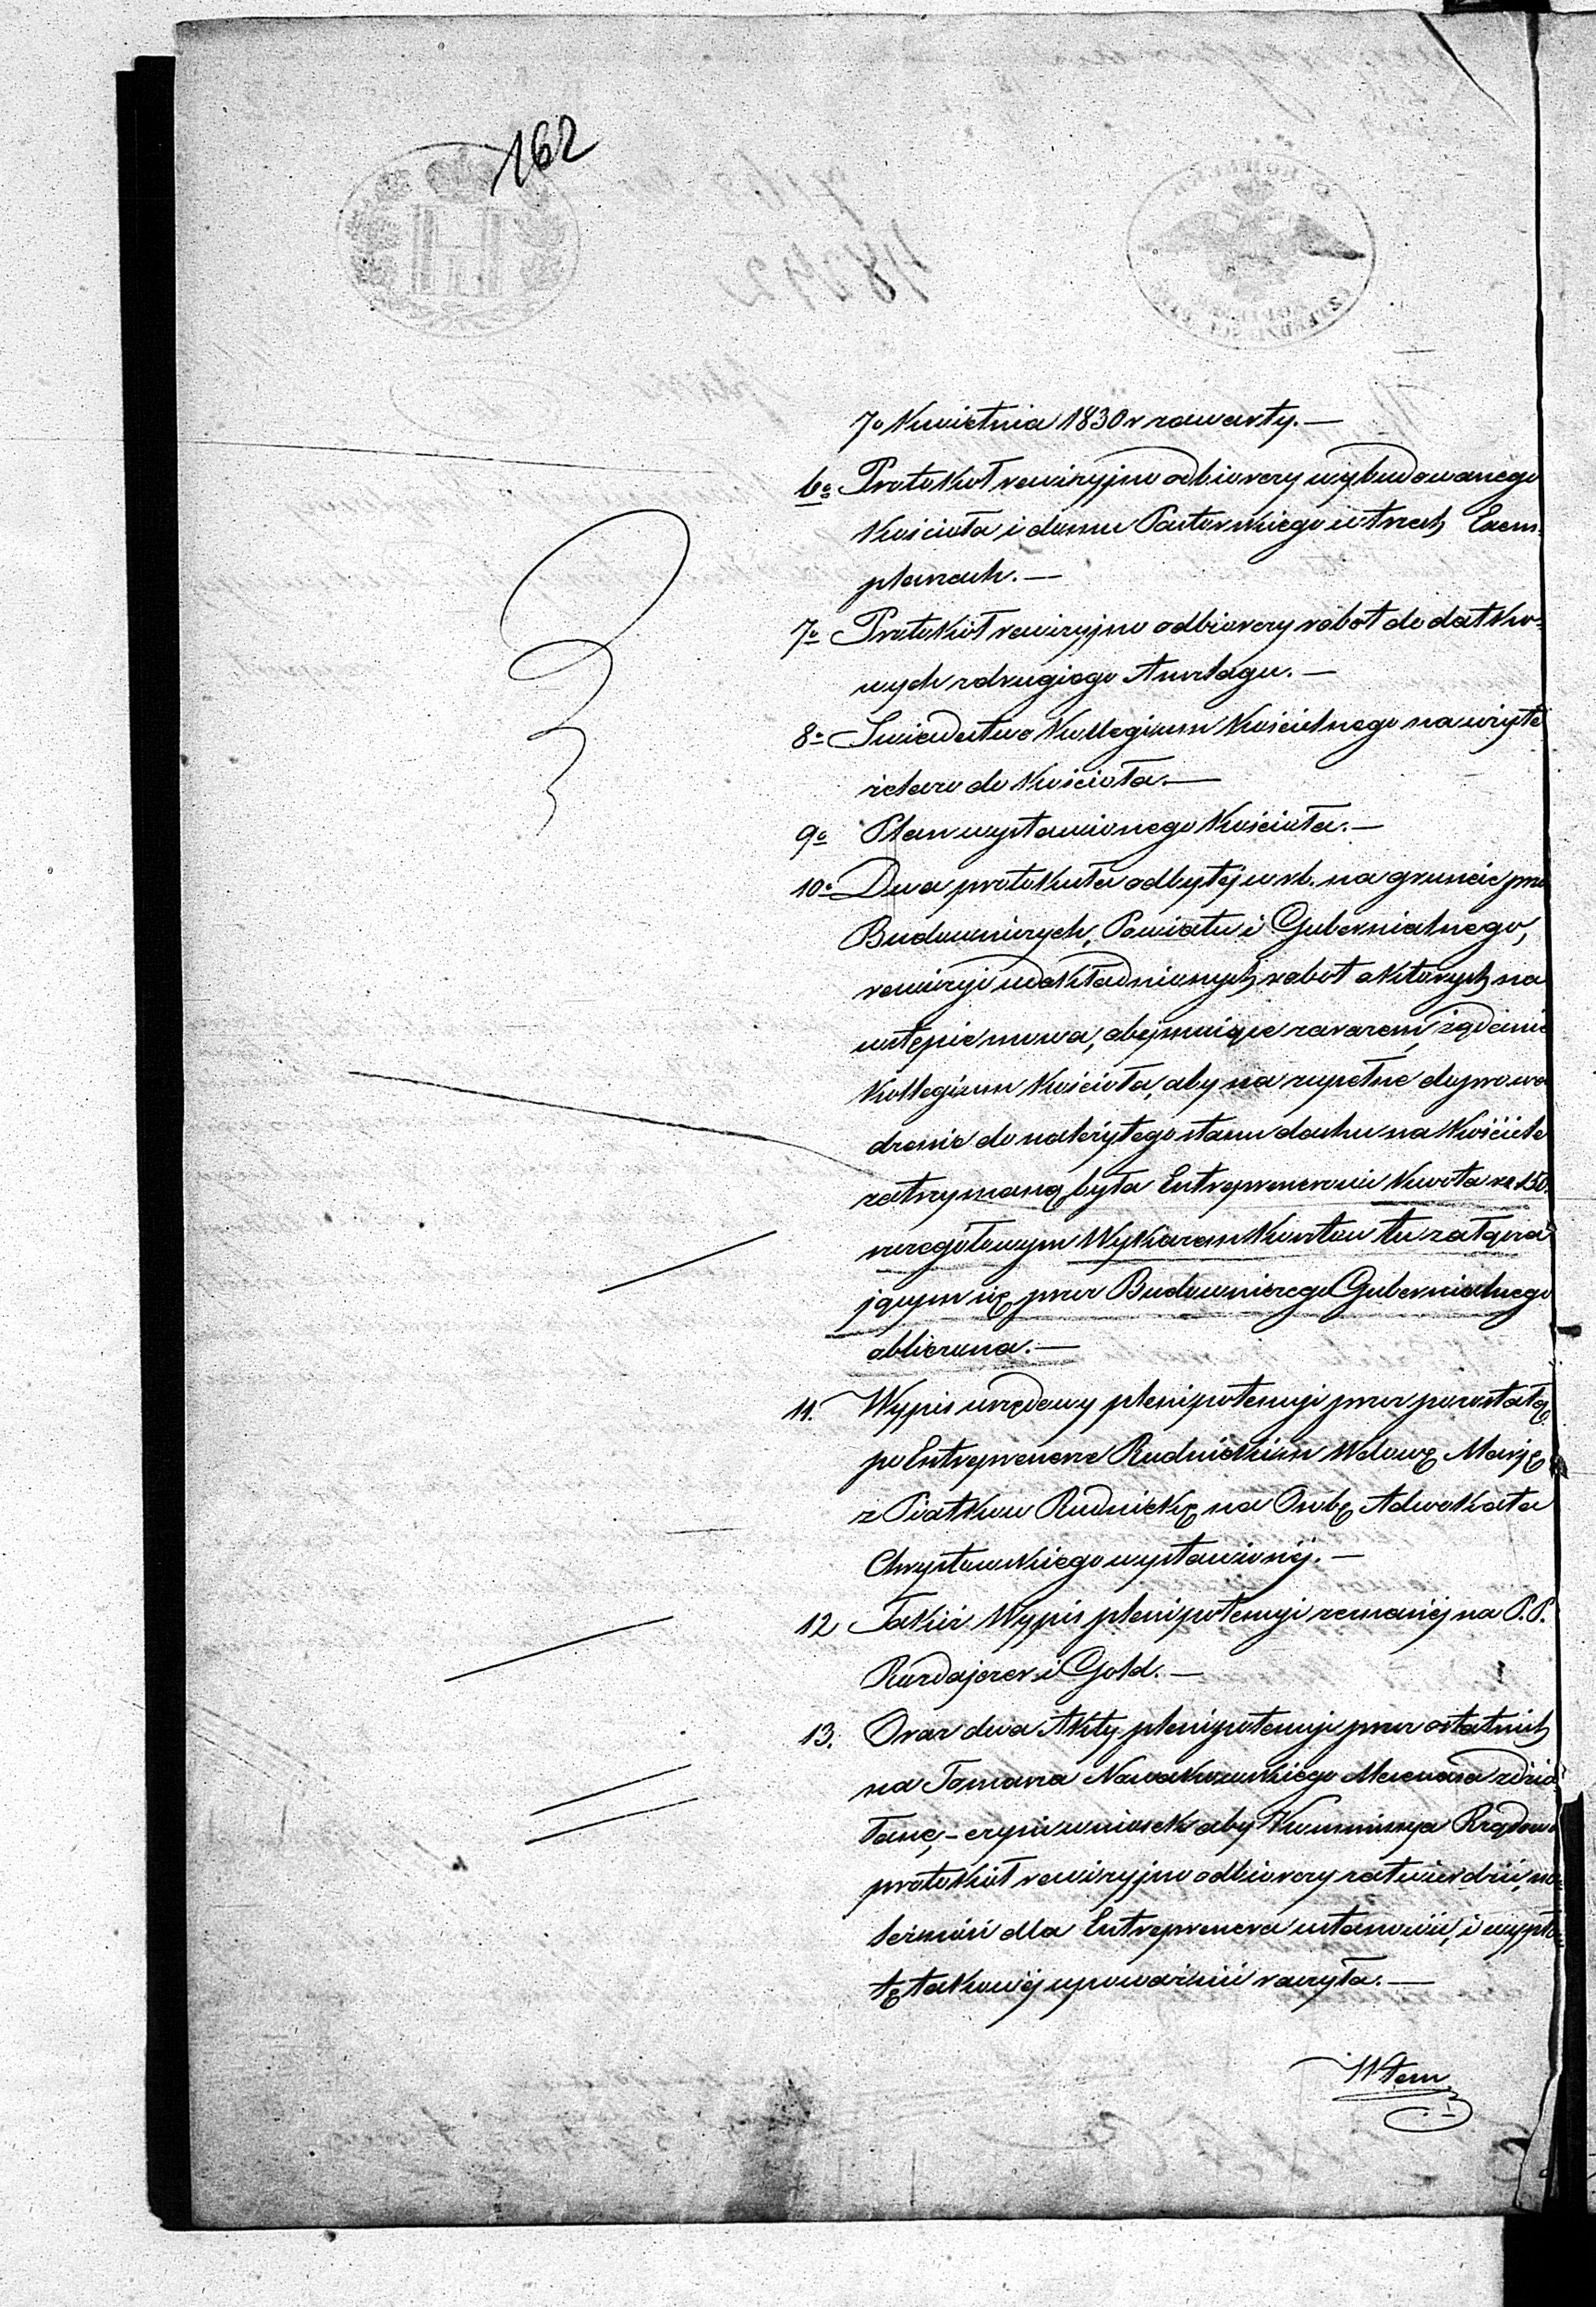 162
7º Kwietnia 1830 r zawarty. —
6º Protokoł rewizyjno odbiorczy wybudowanego
Kościoła i domu Pastorskiego w trzech Exem-
plarzach. —
7º Protokół rewizyjno odbiorczy robot dodatko-
wych z drugiego Anszlagu. —
8º Swiadectwo Kollegium Kościelnego na użyte
żelazo do Kościoła. —
9º Plan wystawionego Kościoła. —
10º Dwa protokuła odbytej w rb. na gruncie prze
Budowniczych, Powiatu i Gubernialnego,
rewizyi uskładnionych robot o których na
wstępie mowa, obejmujące zarazem, żądanie
Kollegium Kościoła, aby na zupełne doprowa
dzenie do należytego stanu dachu na Kościele
zatrzymaną była Entreprenerowi Kwota rs 150.
szczegółowym Wykazem Kosztow tu załącza-
jącym się przez Budowniczego Gubernialnego
obliczona. —
11. Wypis urzędowy plenipotencyi przez pozostałą
po Entreprenerze Rudnickim Wdowę Marję
z Piatkow Rudnicką na Osobę Adwokata
Chrystowskiego wystawionéj. —
12 Takiż Wypis plenipotencyi zeznanéj na P.P.
i Gold. —
13. Oraz dwa Akty plenipotencyi przez ostatnich
na Tomasza Nawakowskiego Mecenasa zdzia-
łane, — czyni wniosek aby Kommissya Rządowa
protokół rewizyjno odbiorczy zatwierdzić, na-
leżność dla Entreprenera ustanowić, i wypła-
tę takowéj upoważnić raczyła. —
W tem